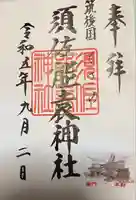 奉拝
筑後國
須佐能袁神社
令和五年九月二日